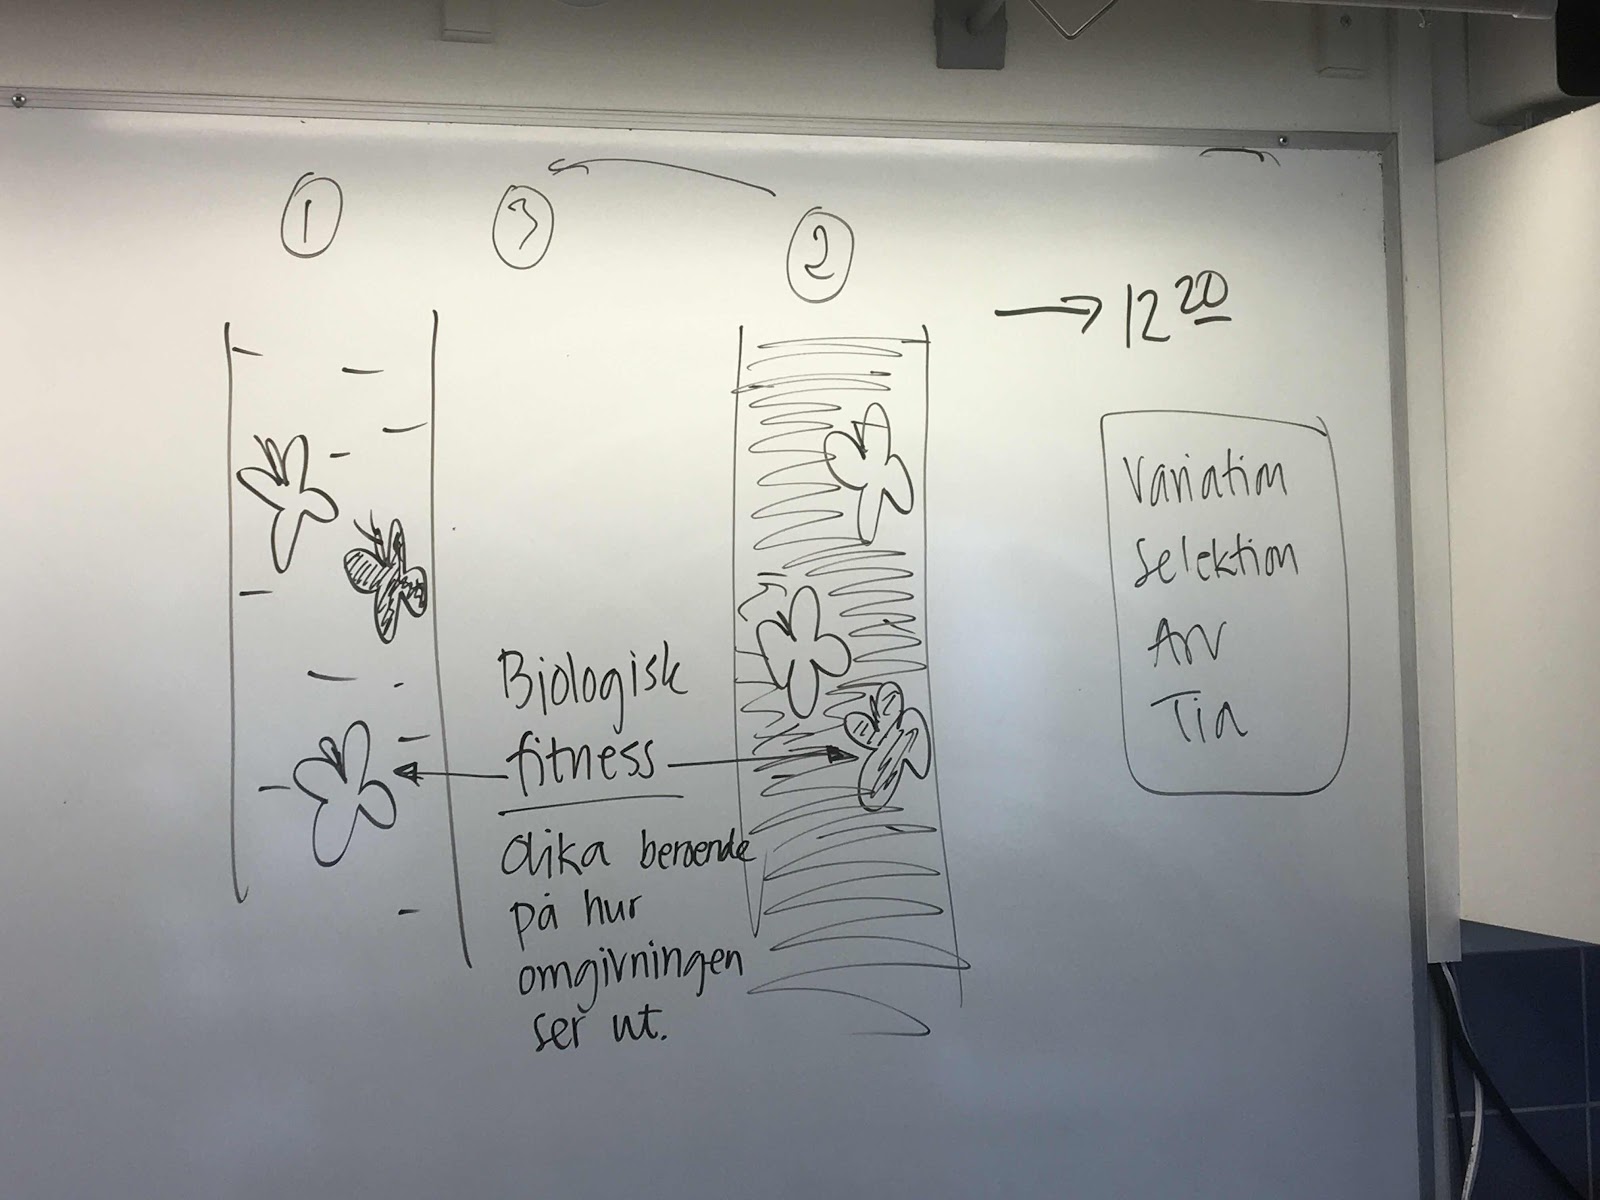 1
3
2
→ 12 20
Variation
Selektion
Arv
Tid
Biologisk
fitness
Olika beroende
på hur
omgivningen
ser ut.